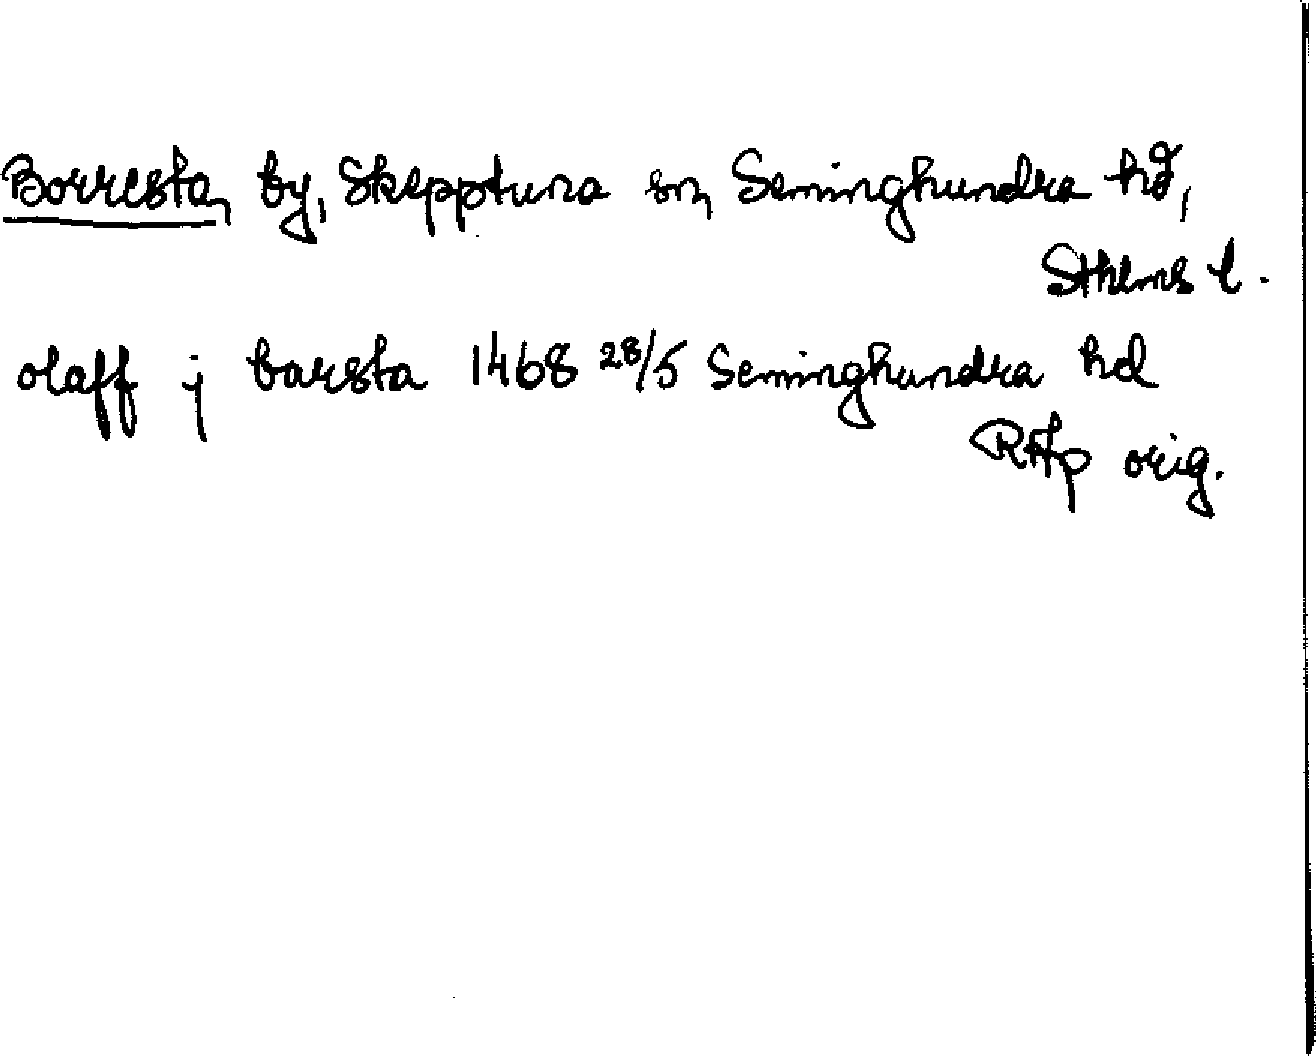 Borresta, by, Skepptuna sn, Seminghundra hd,
Sthlms l.
olaff j barsta 1468 28/5 Seminghundra hd
RAp orig.